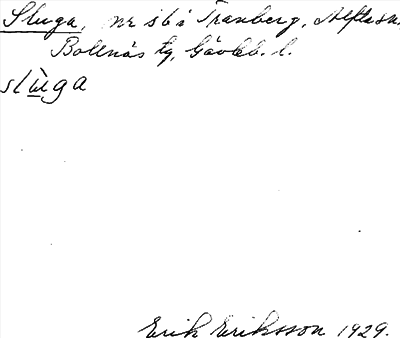 Sluga, nr 56 i Tranberg, Alfta sn.
Bollnäs tg, Gävleb. l.
slùga
Erik Eriksson 1929.